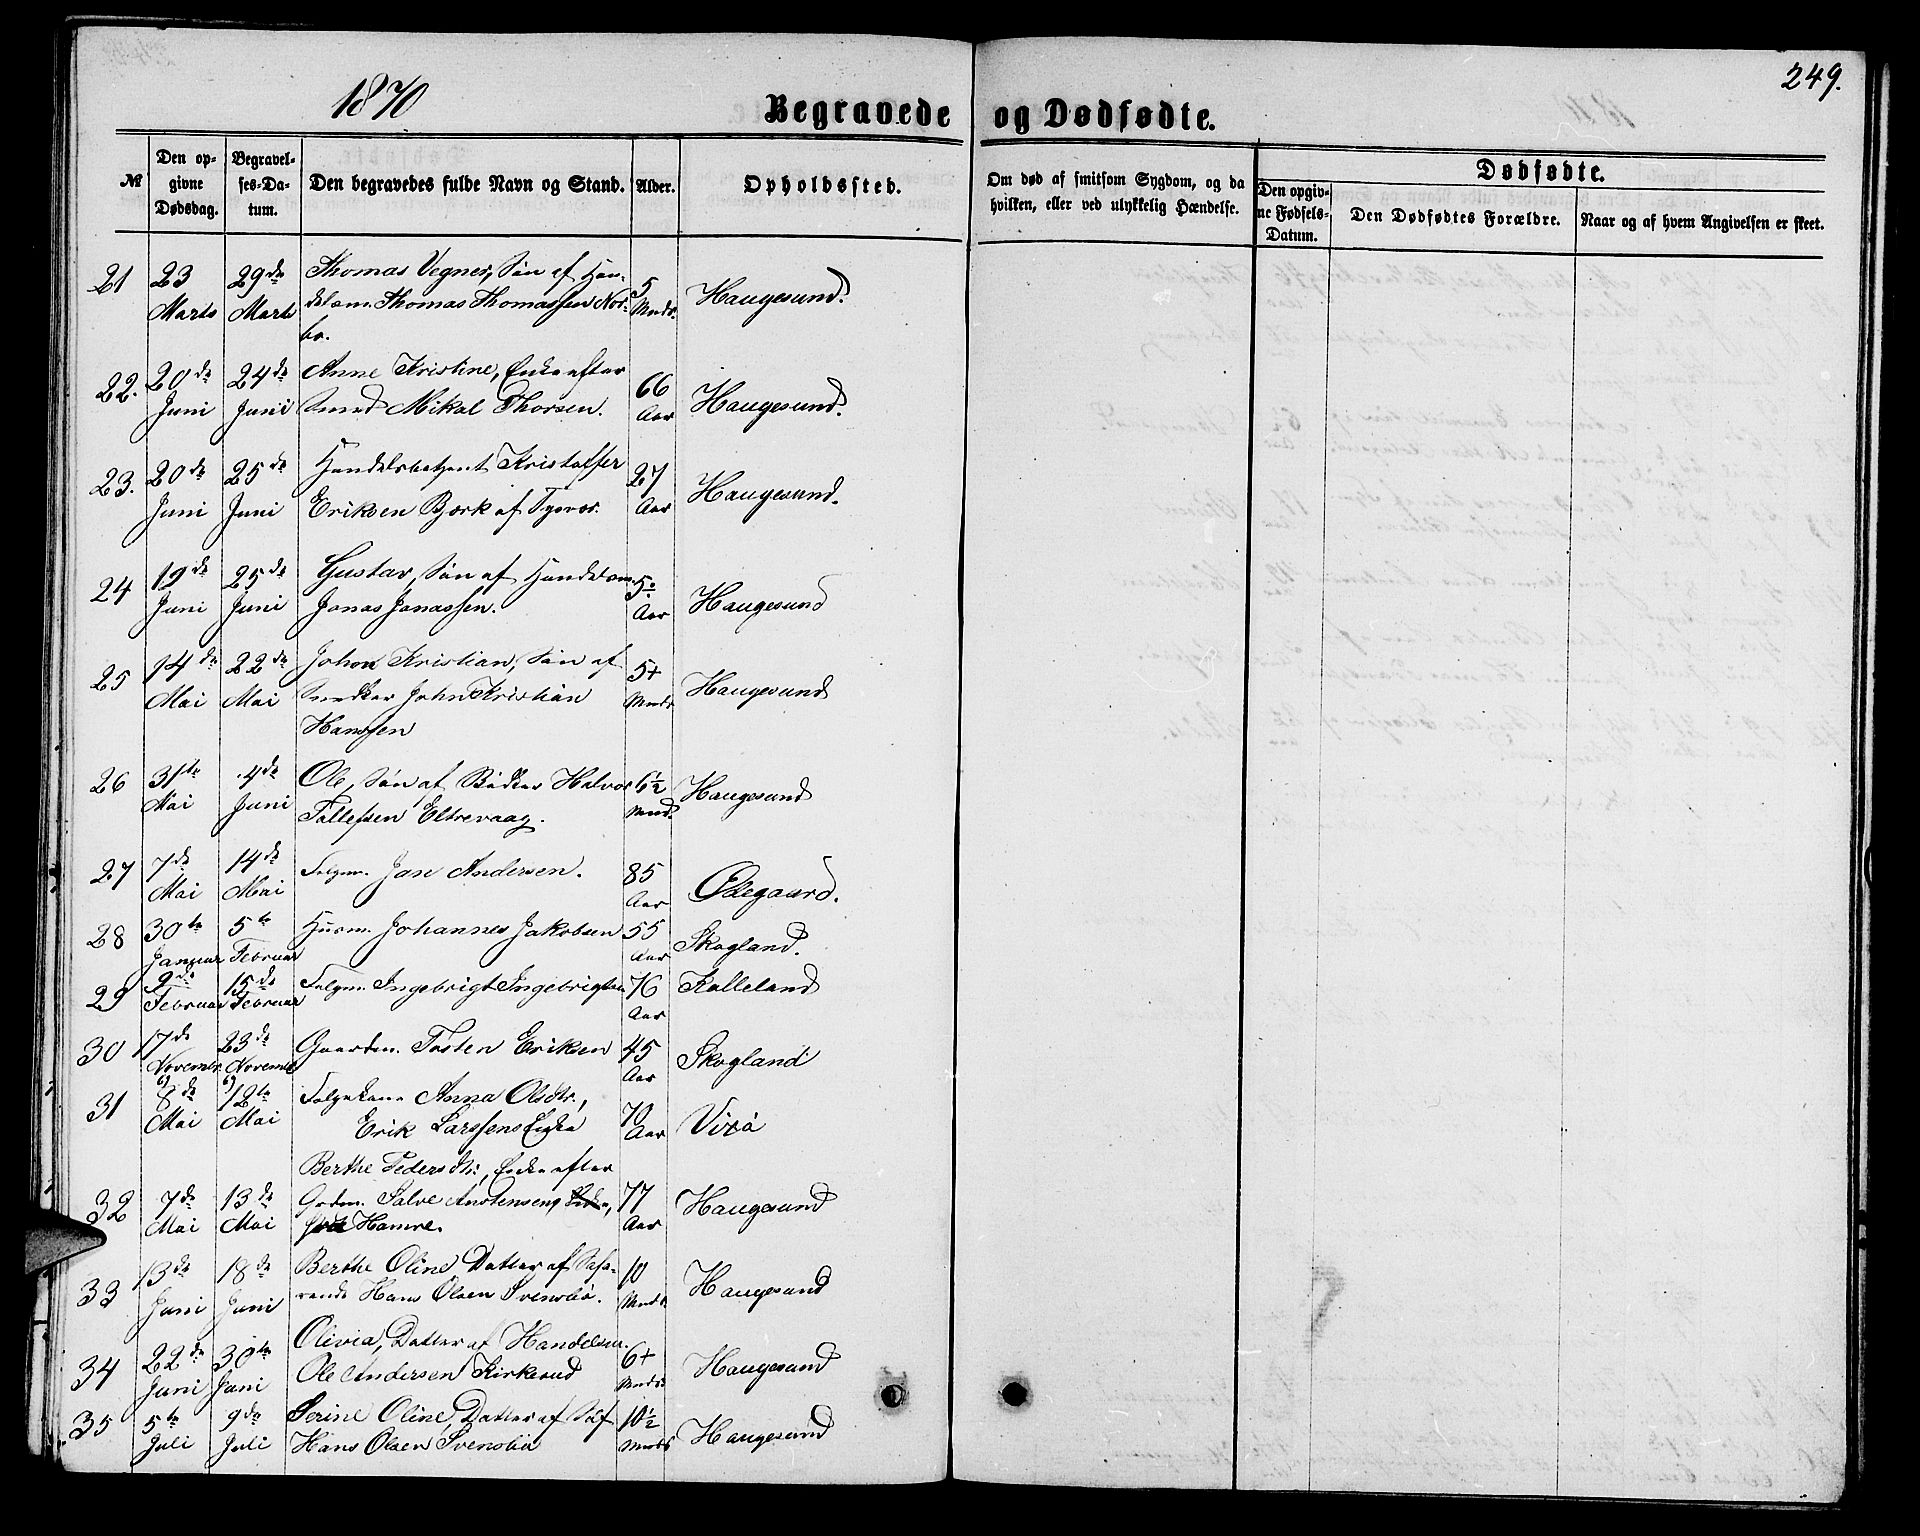 249.
1870
Begravede og Dødfødte.
№
Den op-
givne
Dødsdag.
Begravel-
ses-Da-
tum.
Den begravedes fulde Navn og Stand.
Alder.
Opholdssted.
Om død af smitsom Sygdom, og da
hvilken, eller ved ulykkelig Hændelse.
Dødfødte.
Den opgiv-
ne Fødsels-
Datum.
Den Dødfødtes Forældre.
Naar og af hvem Angivelsen er skeet.
21 23 Marts 29de Marts Thomas Vegner, Søn af Han-
delsm. Thomas Thomassen Nor-
bø. 5 Mndr. Haugesund.
22. 20de Juni 24de Juni Anne Kristine, Enke efter
Smed Mikal Thorsen. 66 Aar Haugesund.
23. 20de Juni 25de Juni Handelsbetjent Kristoffer
Eriksen Bjørk af Tysvær. 27 Aar Haugesund.
24 19de Juni 25de Juni Gustav, Søn af Handelsm.
Jonas Jonassen. 5 Aar Haugesund
25 14de Mai 22de Mai Johan Kristian, Søn af
Snedker John Kristian
Hanssen 5+ Mndr Haugesund
26 31te Mai 4de Juni Ole, Søn af Bødker Halvor
Tollefsen Eltrevaag. 6½ Mnd. Haugesund
27 7de Mai 14de Mai Folgm. Jan Andersen. 85 Aar Ødegaard.
28 30te Januar 5te Februar Husm. Johannes Jakobsen 55 Aar Skogland.
29 9de Februar 15de Februar Folgm. Ingebrigt Ingebrigtsen 76 Aar Kalleland
30 17de November 23de November Gaardm. Tosten Eriksen 45 Aar Skogland
31 8de Mai 12te Mai Folgekone Anna Olsdtr.,
Erik Larssens Enke 70 Aar Vixø
32 7de Mai 13de Mai Berthe Pedersdtr., Enke efter
Grdm. Salve Anstensens,
Hamre. 77 Aar Haugesund
33 13de Juni 18de Juni Berthe Oline Datter af Søfa-
rende Hans Olsen Svensbø. 10 Mndr. Haugesund
34 22de Juni 30te Juni Olivia, Datter af Handelsm.
Ole Andersen Kirkerud 6+ Mndr Haugesund
35 5te Juli 9de Juli Serine Oline, Datter af Søf
Hans Olsen Svensbø 10½ Mndr Haugesund